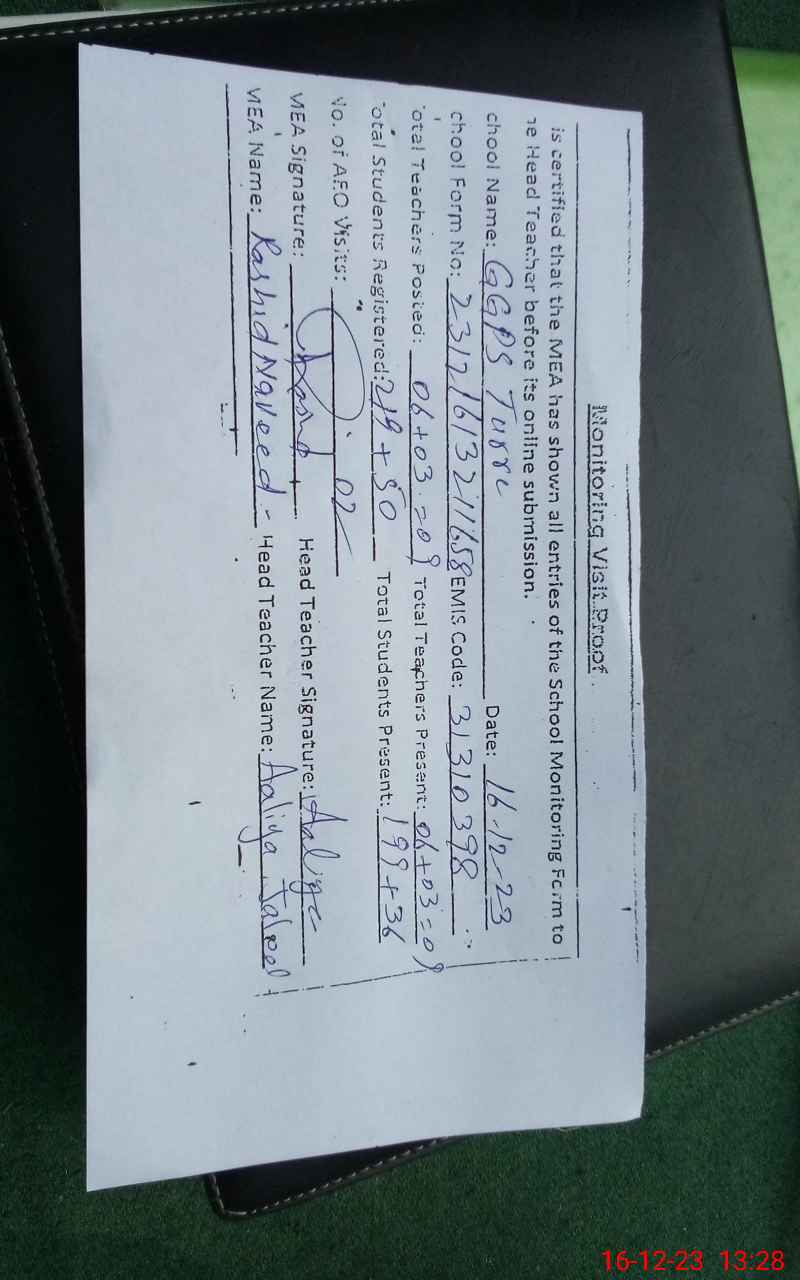 Monitoring Visit Proof
is certified that the MEA has shown all entries of the School Monitoring Form to
he Head Teacher before its online submission.
chool Name: GGPS Date: 16-12-23
chool Form No: 23121613211658 EMIS Code: 31310398
otal Teachers Posted: 06+03=09 Total Teachers Present: 06+03=09
otal Students Registered: 219+50 Total Students Present: 199+36
No. of AEO Visits: 02
MEA Signature: Head Teacher Signature: Aaliya
MEA Name: Rashid Naveed Head Teacher Name: Aaliya
16-12-23 13:28